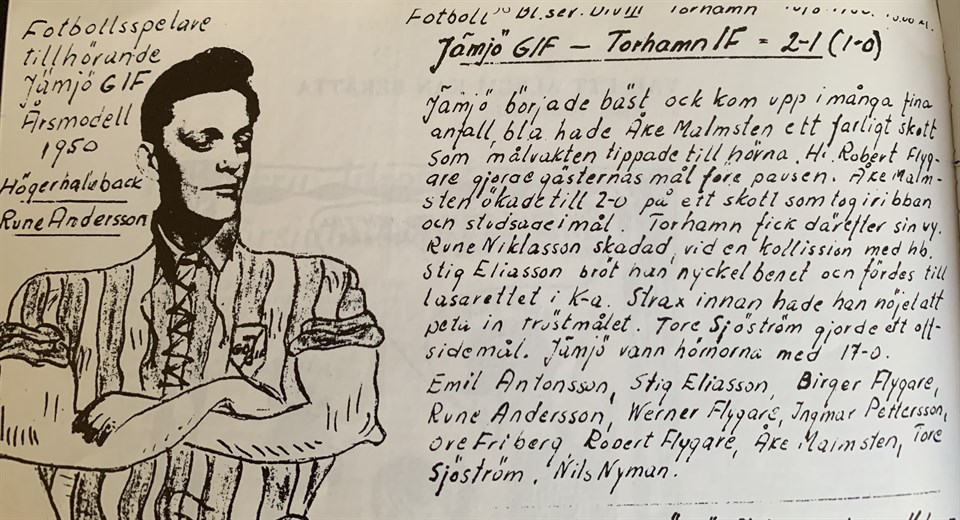 Fotbollsspelare
tillhörande
Jämjö GIF
Årsmodell
1950
Högerhalvback
Rune Andersson
Fotboll Bl.ser. Div III Torhamn
Jämjö GIF — Torhamn IF = 2-1 (1-0)
Jämjö började bäst och kom upp i många fina
anfall, bla hade Åke Malmsten ett farligt skott
som målvakten tippade till hörna. Hi. Robert Flyg-
are gjorde gästernas mål före pausen. Åke Malm-
sten ökade till 2-0 på ett skott som tog i ribban
och studsade i mål. Torhamn fick därefter sin vy.
Rune Niklasson skadad, vid en kollission med hb.
Stig Eliasson bröt han nyckelbenet och fördes till
lasarettet i K-a. Strax innan hade han nöjet att
peta in tröstmålet. Tore Sjöström gjorde ett off-
sidemål. Jämjö vann hörnorna med 17-0.
Emil Antonsson, Stig Eliasson, Birger Flygare,
Rune Andersson, Werner Flygare, Ingmar Pettersson,
Ove Friberg, Robert Flygare, Åke Malmsten, Tore
Sjöström, Nils Nyman.